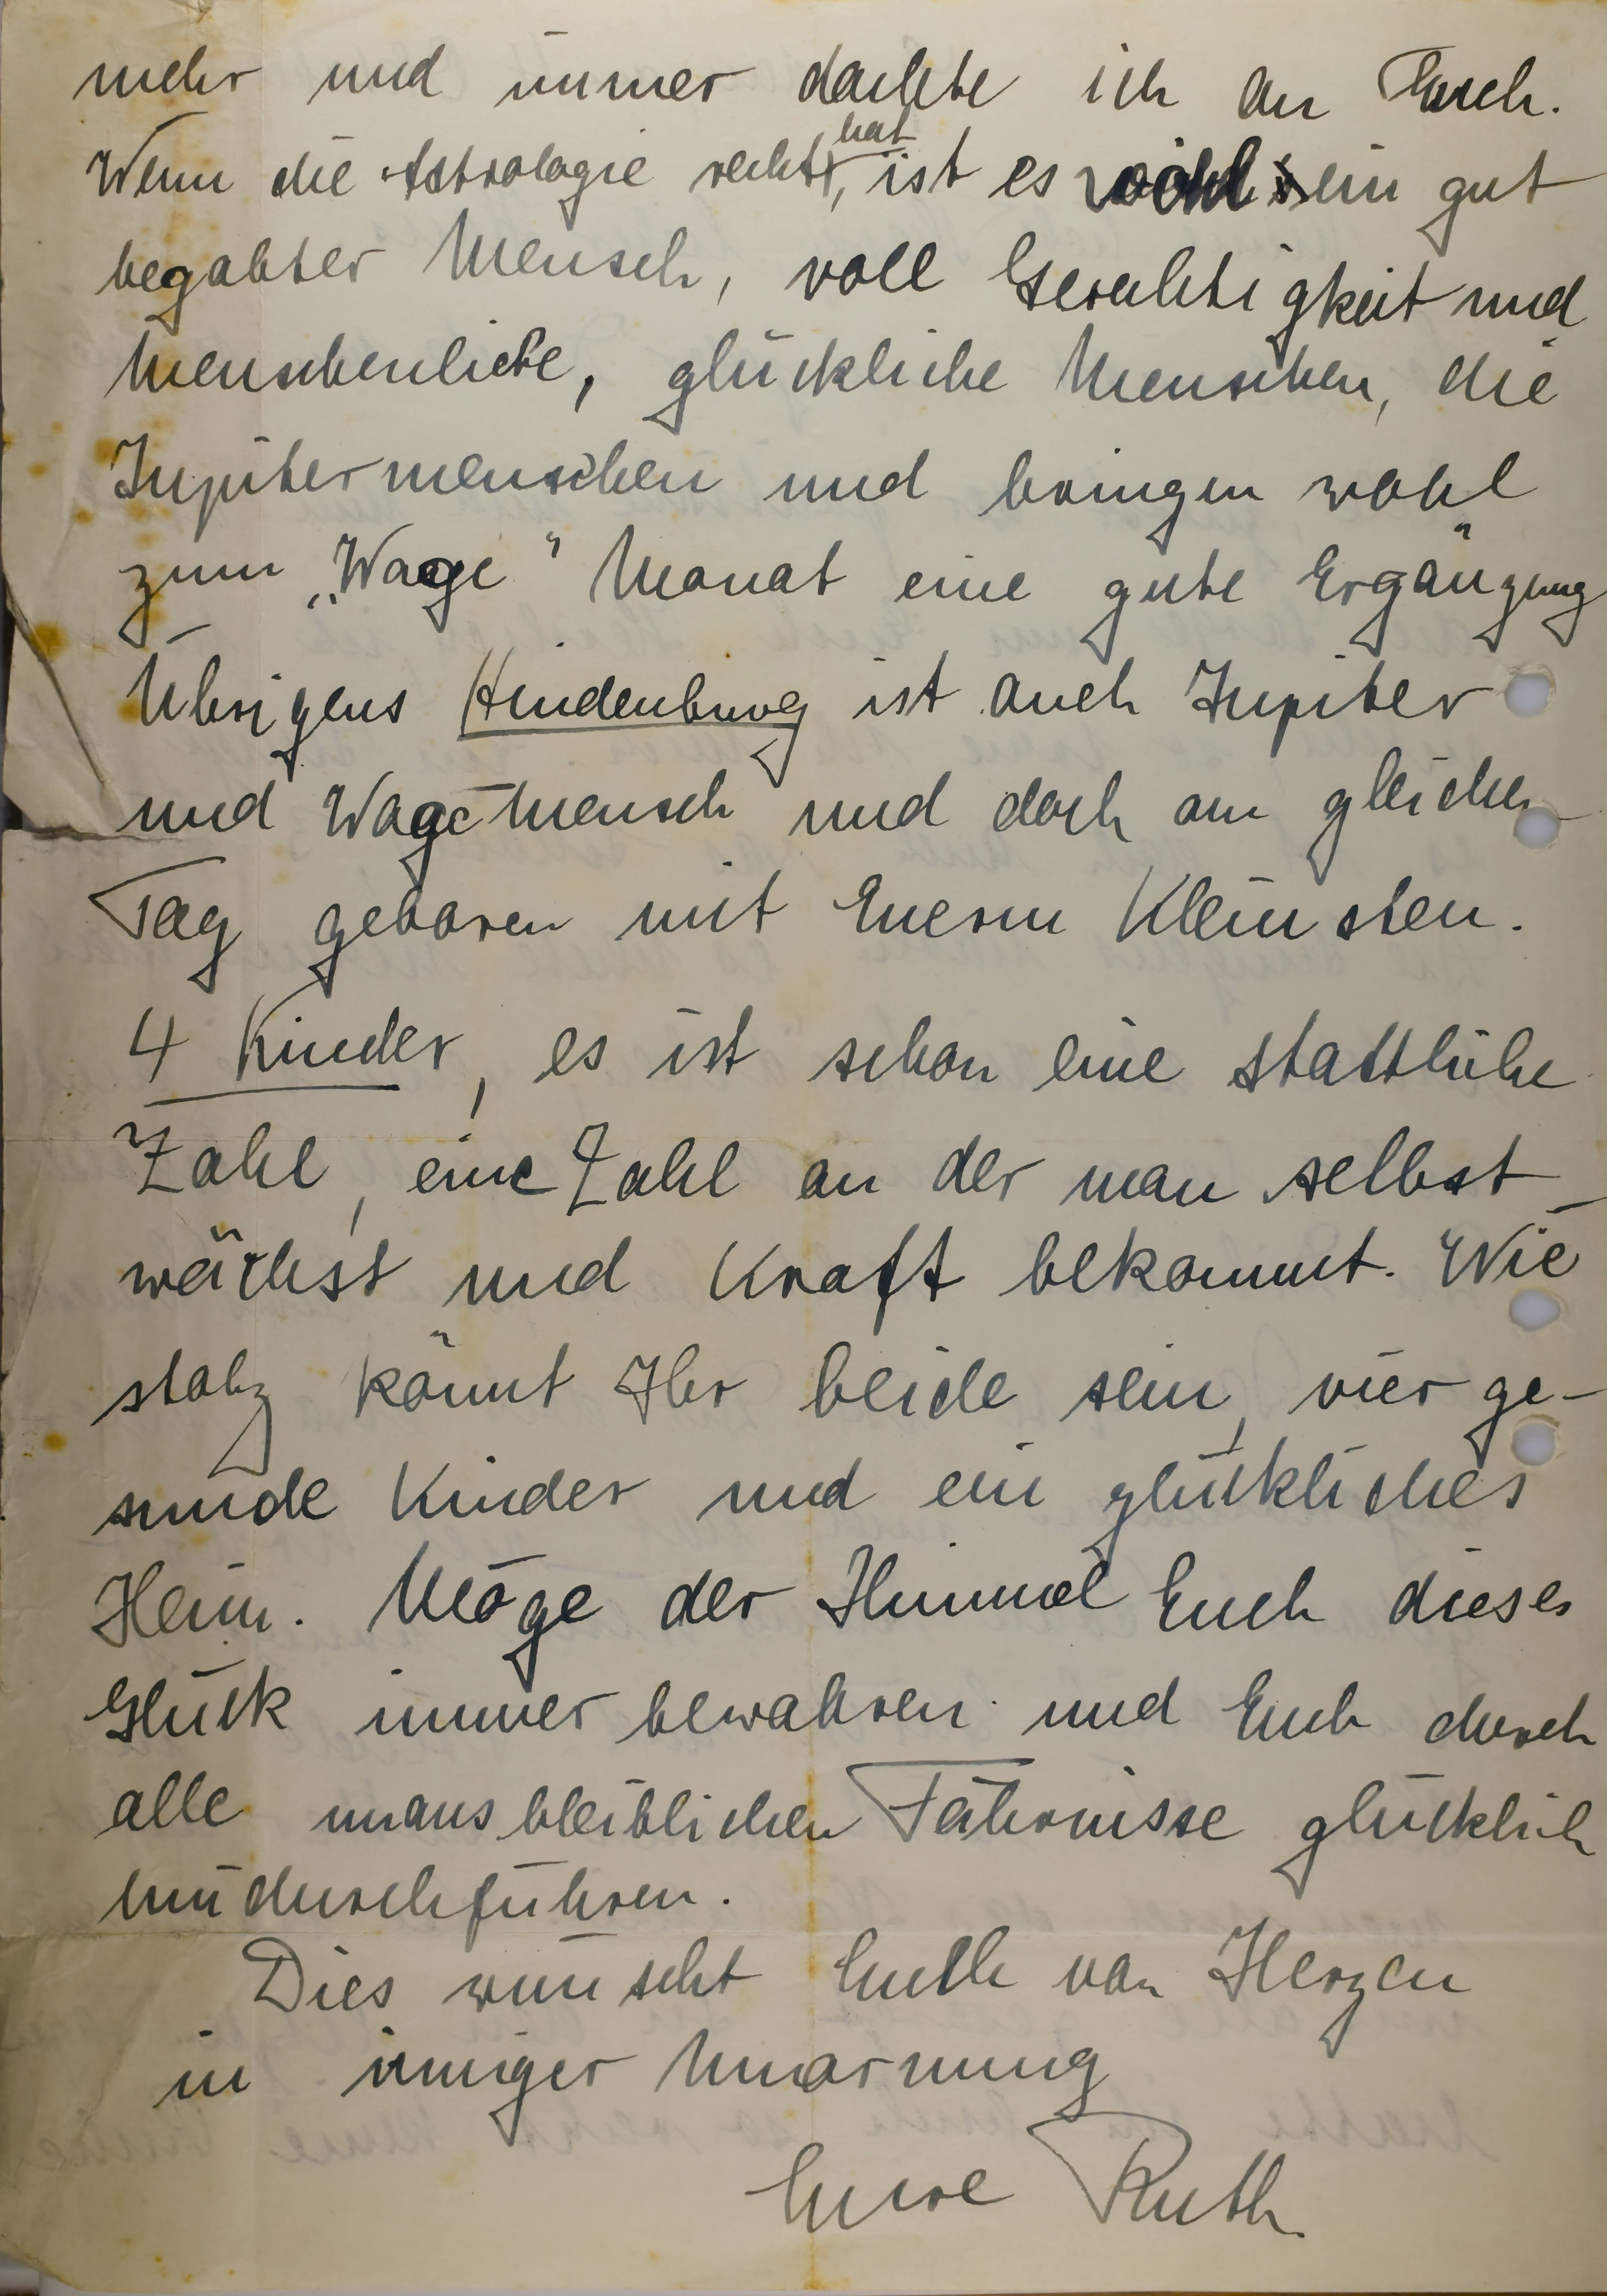 mehr und immer dachte ich an Euch.
Wenn die Astrologie recht hat, ist es wohl ein gut
begabter Mensch, voll Gerechtigkeit und
Menschenliebe, glückliche Menschen, die
Jupitermenschen und bringen wohl
zum „Wage" Monat eine gute Ergänzung
Übrigens Hindenburg ist auch Jupiter
und Wage Mensch und doch am gleichen
Tag geboren mit Euerm Kleinsten.
4 Kinder, es ist schon eine stattliche
Zahl, eine Zahl an der man selbst
wächst und Kraft bekommt. Wie
stolz könnt Ihr beide sein, vier ge-
sunde Kinder und ein glückliches
Heim. Möge der Himmel Euch dieses
Glück immer bewahren und Euch durch
alle unausbleiblichen Fährnisse glücklich
hindurchführen.
Dies wünscht Euch von Herzen
in inniger Umarmung
Eure Ruth.